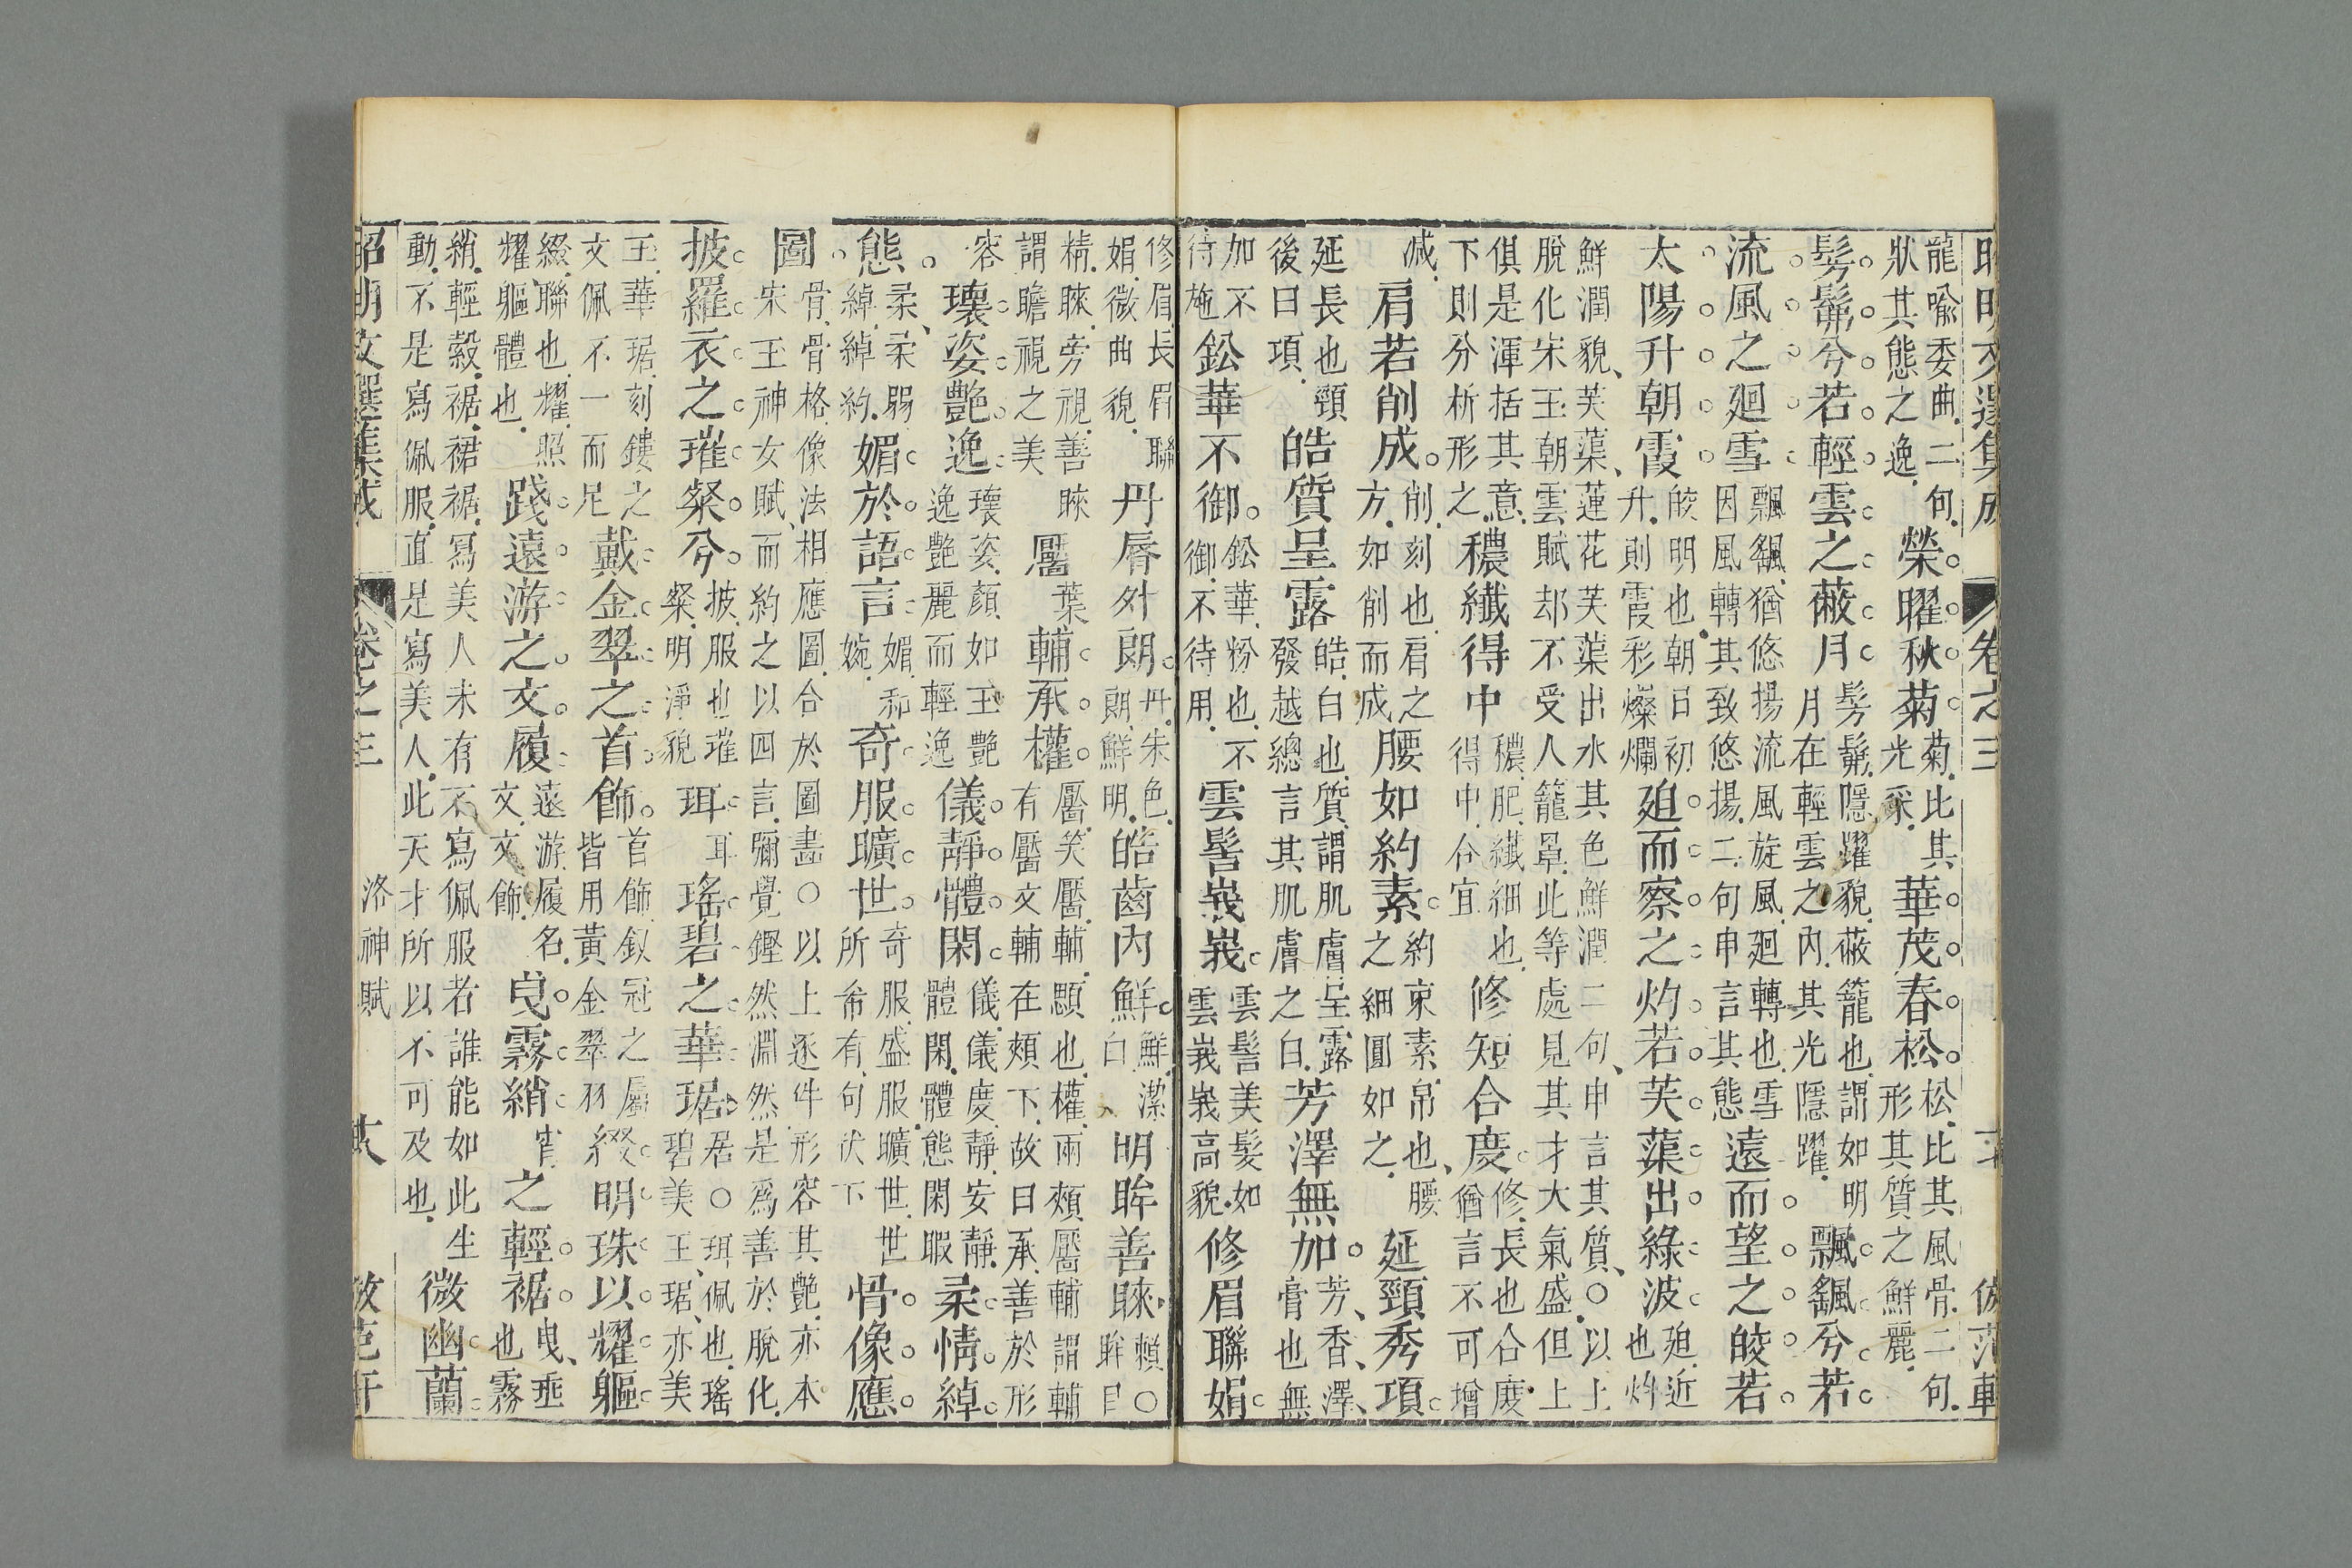 昭明文選集成 卷之三 倣范軒
龍喻委曲二句狀其態之逸榮曜秋菊菊比其光采華茂春松松比其風骨二句形其質之鮮麗
髣髴兮若輕雲之蔽月髣髴隱躍貌蔽籠也謂如明月在輕雲之內其光隱躍飄颻兮若
流風之廻雪飄颻猶悠揚流風旋風廻轉也雪因風轉其致悠揚二句申言其態遠而望之皎若
太陽升朝霞皎明也朝日初升則霞彩燦爛廹而察之灼若芙蕖出綠波廹近也灼
鮮潤貌芙蕖蓮花芙蕖出水其色鮮潤二句申言其質○以上脫化宋玉朝雲賦却不受人籠罩此等處見其才大氣盛但上
俱是渾括其意下則分析形之穠纖得中穠肥纖細也得中合宜修短合度修長也合度猶言不可增
減肩若削成削刻也肩之方如削而成腰如約素約束素帛也腰之細圓如之延頸秀項
延長也頸後曰項皓質呈露皓白也質謂肌膚呈露發越總言其肌膚之白芳澤無加芳香澤膏也無
加不待施鉛華不御鉛華粉也不御不待用雲髻峩峩雲髻美髮如雲峩峩高貌修眉聯娟
修眉長眉聯娟微曲貌丹脣外朗丹朱色朗鮮明皓齒內鮮鮮潔白明眸善睞賴○眸目
精睞旁視善睞謂瞻視之美靨葉輔承權靨笑靨輔顋也權兩頰靨輔謂輔有靨文輔在頰下故曰承善於形
容瓌姿艶逸瓌姿顏如玉艷逸艷麗而輕逸儀靜體閑儀儀度靜安靜體閑體態閑暇柔情綽
態柔柔弱綽綽約媚於語言媚和婉奇服曠世奇服盛服曠世世所希有句伏下骨像應
圖骨骨格像法相應圖合於圖畵○以上逐件形容其艷亦本宋玉神女賦而約之以四言彌覺鏗然淵然是爲善於脫化
披羅衣之璀粲兮披服也璀粲明淨貌珥耳瑤碧之華琚居○珥佩也瑤碧美玉琚亦美
玉華琚刻鏤之文佩不一而足戴金翠之首飾首飾釵冠之屬皆用黃金翠羽綴明珠以耀軀
綴聯也耀照耀軀體也踐遠游之文履遠游履名文文飾曳霧綃宵之輕裾曳垂也霧
綃輕縠裾裙裾寫美人未有不寫佩服者誰能如此生動不是寫佩服直是寫美人此天才所以不可及也微幽蘭
昭明文選集成 卷之三 洛神賦 倣范軒